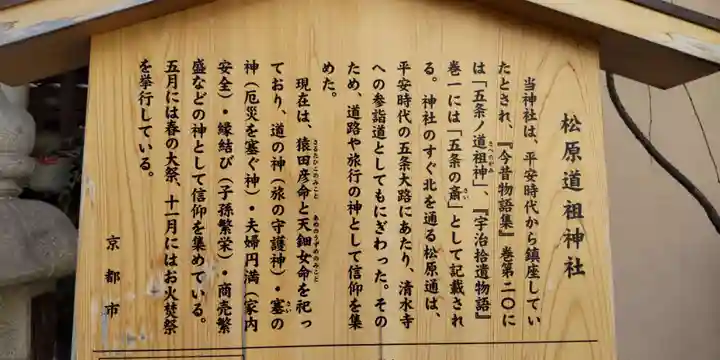 松原道祖神社
当神社は、平安時代から鎮座してい
たとされ、『今昔物語集』巻第二〇に
は「五条ノ道祖神」、『宇治拾遺物語』
巻一には「五条の斎」として記載され
る。神社のすぐ北を通る松原通は、
平安時代の五条大路にあたり、清水寺
への参詣道としてもにぎわった。その
ため、道路や旅行の神として信仰を集
めた。
現在は、猿田彦命と天鈿女命を祀っ
ており、道の神(旅の守護神)・塞の
神(厄災を塞ぐ神)・夫婦円満(家内
安全)・縁結び(子孫繁栄)・商売繁
盛などの神として信仰を集めている。
五月には春の大祭、十一月にはお火焚祭
を挙行している。
京都市